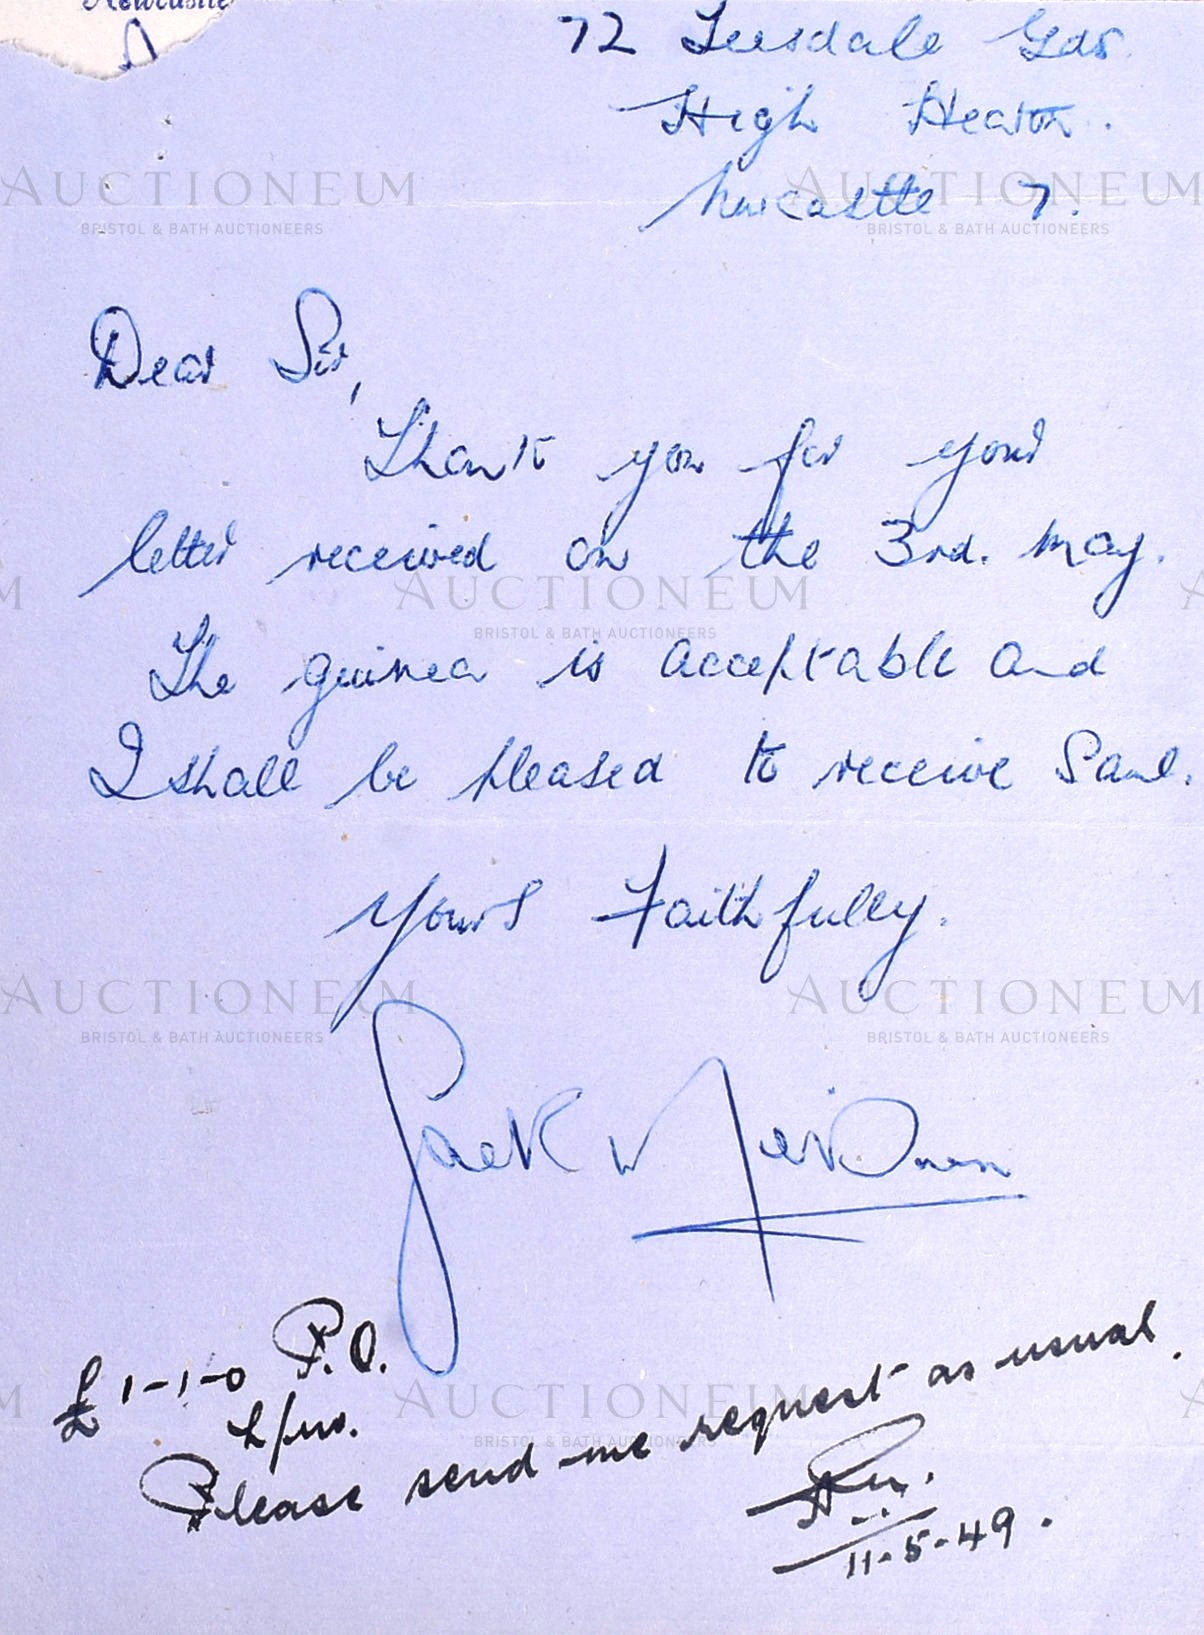 Newcastle
72 Teesdale Gds
High Heaton.
Newcastle 7.
Dear Sir,
Thank you for your
letter received on the 3rd. May.
The guinea is acceptable and
I shall be pleased to receive Same.
Yours Faithfully.
Jack W
£1-1-0 P.O.
Please send me request as usual.
11-5-49.
AUCTIONEUM
BRISTOL & BATH AUCTIONEERS